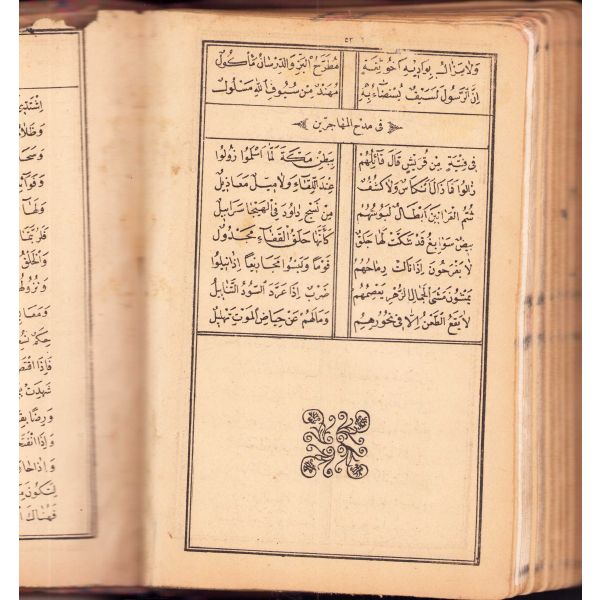 ٥٣
وَلَا يَزَالُ بِوَادِيهِ اَخُو ثِقَةٍ مُطَرَّحُ الْبَزِّ وَالدِّرْسَانِ مَأْكُولُ
اِنَّ الرَّسُولَ لَسَيْفٌ يُسْتَضَاءُ بِهِ مُهَنَّدٌ مِنْ سُيُوفِ اللهِ مَسْلُولُ
فى مدح المهاجرين
فِى فِتْيَةٍ مِنْ قُرَيْشٍ قَالَ قَائِلُهُمْ بِبَطْنِ مَكَّةَ لَمَّا اَسْلَمُوا زُولُوا
زَالُوا فَمَا زَالَ اَنْكَاسٌ وَلَا كُشُفٌ عِنْدَ اللِّقَاءِ وَلَا مِيلٌ مَعَازِيلُ
شُمُّ الْعَرَانِينِ اَبْطَالٌ لَبُوسُهُمْ مِنْ نَسْجِ دَاوُدَ فِى الْهَيْجَا سَرَابِيلُ
بِيضٌ سَوَابِغُ قَدْ شُكَّتْ لَهَا حَلَقٌ كَأَنَّهَا حَلَقُ الْقَفْعَاءِ مَجْدُولُ
لَا يَفْرَحُونَ اِذَا نَالَتْ رِمَاحُهُمُ قَوْمًا وَلَيْسُوا مَجَازِيعًا اِذَا نِيلُوا
يَمْشُونَ مَشْىَ الْجِمَالِ الزُّهْرِ يَعْصِمُهُمْ ضَرْبٌ اِذَا عَرَّدَ السُّودُ التَّنَابِيلُ
لَا يَقَعُ الطَّعْنُ اِلَّا فِى نُحُورِهِمُ وَمَا لَهُمْ عَنْ حِيَاضِ الْمَوْتِ تَهْلِيلُ
وَلَهَا
فَاِذَا
شَهِدَتْ
وَاِذَا
لِتَكُونَ
فَهُنَاكَ